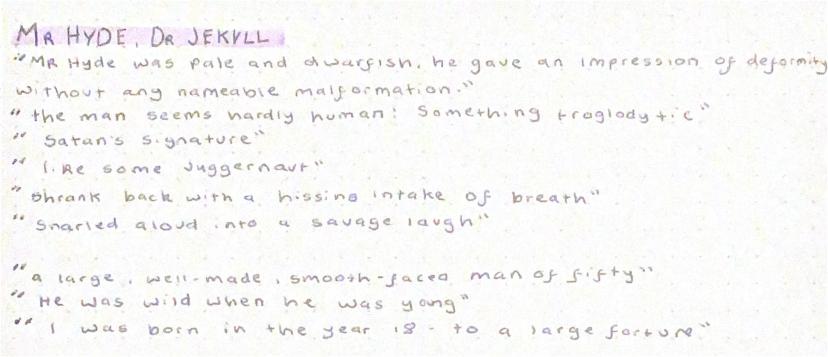 MR HYDE, DR JEKYLL
"MR Hyde was pale and dwarfish, he gave an impression of deformity
without any nameable malformation."
"the man seems hardly human! Something troglodytic"
"Satan's signature"
"like some Juggernaut"
"shrank back with a hissing intake of breath"
"Snarled aloud into a savage laugh"
"a large, well-made, smooth-faced man of fifty"
"He was wild when he was yong"
"I was born in the year 18- to a large fortune"